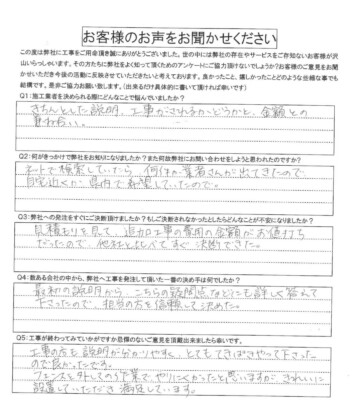 お客様のお声をお聞かせください
この度は弊社に工事をご用命頂き誠にありがとうございました。世の中には弊社の存在やサービスをご存知ないお客様が沢
山いらっしゃいます。その方たちに弊社をよく知って頂くためのアンケートにご協力頂けないでしょうか?お客様のご意見をお聞
かせいただき今後の活動に反映させていただきたいと考えております。良かったこと、嬉しかったことどのような些細な事でも
結構です、是非ご協力お願い致します。(出来るだけ具体的に書いて頂ければ幸いです)
Q1:施工業者を決められる際にどんなことで悩んでいましたか?
きちんとした説明、工事がされるかどうかと、金額との
兼ね合い。
Q2:何がきっかけで弊社をお知りになりましたか?また何故弊社にお問い合わせをしようと思われたのですか?
ネットで検索していたら、何件か業者さんが出てきたので、
自宅近くか県内で希望していたので。
Q3:弊社への発注をすぐにご決断頂けましたか?もしご決断されなかったとしたらどんなことが不安になりましたか?
見積もりを見て、追加工事の費用の金額がお値打ち
だったので、他社とくらべてすぐ決断できた。
Q4:数ある会社の中から、弊社へ工事を発注して頂いた一番の決め手は何でしたか?
最初の説明から、こちらの疑問点などにも詳しく答えて
下さったので、担当の方を信頼して決めた。
Q5:工事が終わってみていかがですか忌憚のないご意見を頂戴出来ましたら幸いです。
工事の方も説明が分かりやすく、とてもてきぱきやって下さった
ので良かったです。
フェンスを外しての作業で、やりにくかったと思いますが、きれいに
設置していただき満足しています。